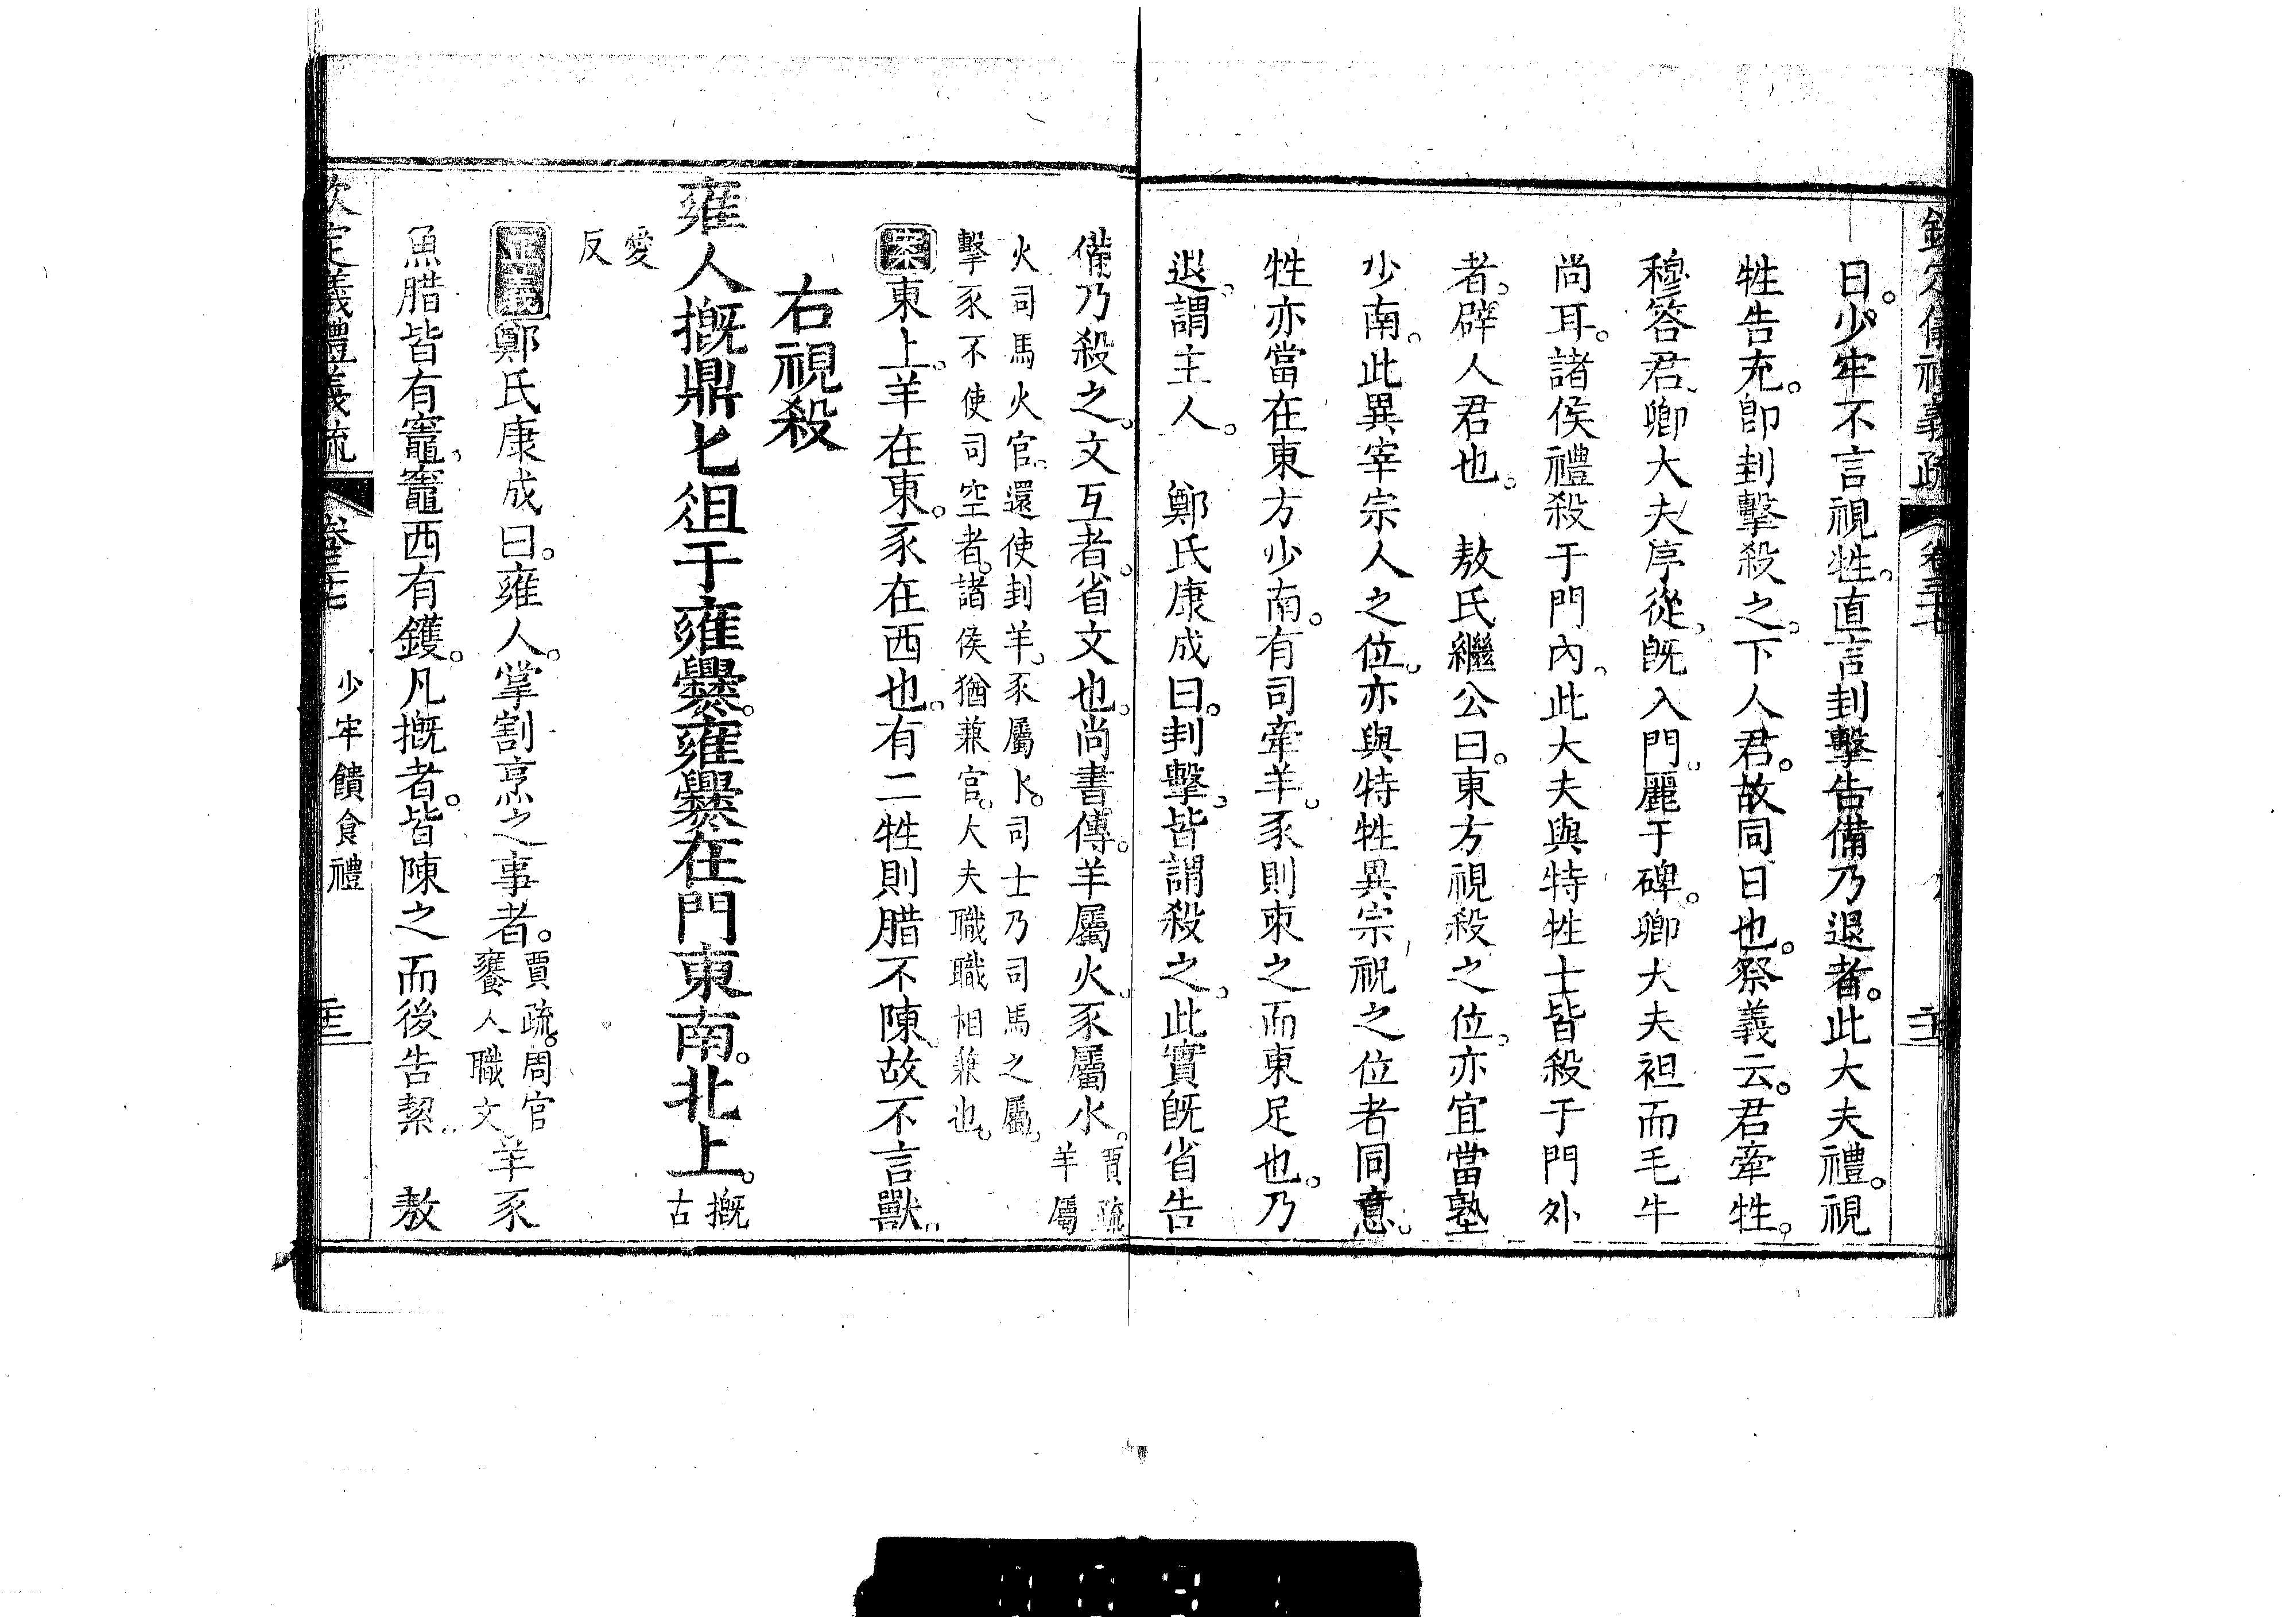 欽定儀禮義疏 卷三十七
曰。少牢不言視牲。直言刲擊告備乃退者。此大夫禮。視
牲告充。卽刲擊殺之。下人君。故同日也。祭義云。君牽牲。
穆答君、卿大夫序從。旣入門。麗于碑。卿大夫袒而毛牛
尚耳。諸侯禮殺于門內。此大夫與特牲士皆殺于門外
者。辟人君也。 敖氏繼公曰。東方視殺之位。亦宜當塾
少南。此異宰宗人之位。亦與特牲異宗祝之位者同意。
牲亦當在東方少南。有司牽羊。豕則束之而東足也。乃
退。謂主人。 鄭氏康成曰。刲擊。皆謂殺之。此實旣省告
備乃殺之。文互者。省文也。尚書傳。羊屬火。豕屬水。賈疏羊屬
火司馬火官。還使刲羊。豕屬水。司士乃司馬之屬。
擊豕不使司空者。諸侯猶兼官。大夫職職相兼也。
案東上。羊在東。豕在西也。有二牲則腊不陳。故不言獸。
右視殺
雍人摡鼎匕俎于雍爨。雍爨在門東南。北上。摡古
愛
反
正義鄭氏康成曰。雍人。掌割亨之事者。賈疏。周官饔人職文。羊豕
魚腊皆有竈。竈西有鑊。凡摡者。皆陳之而後告絜。 敖
欽定義禮義疏 卷三十七 少牢饋食禮